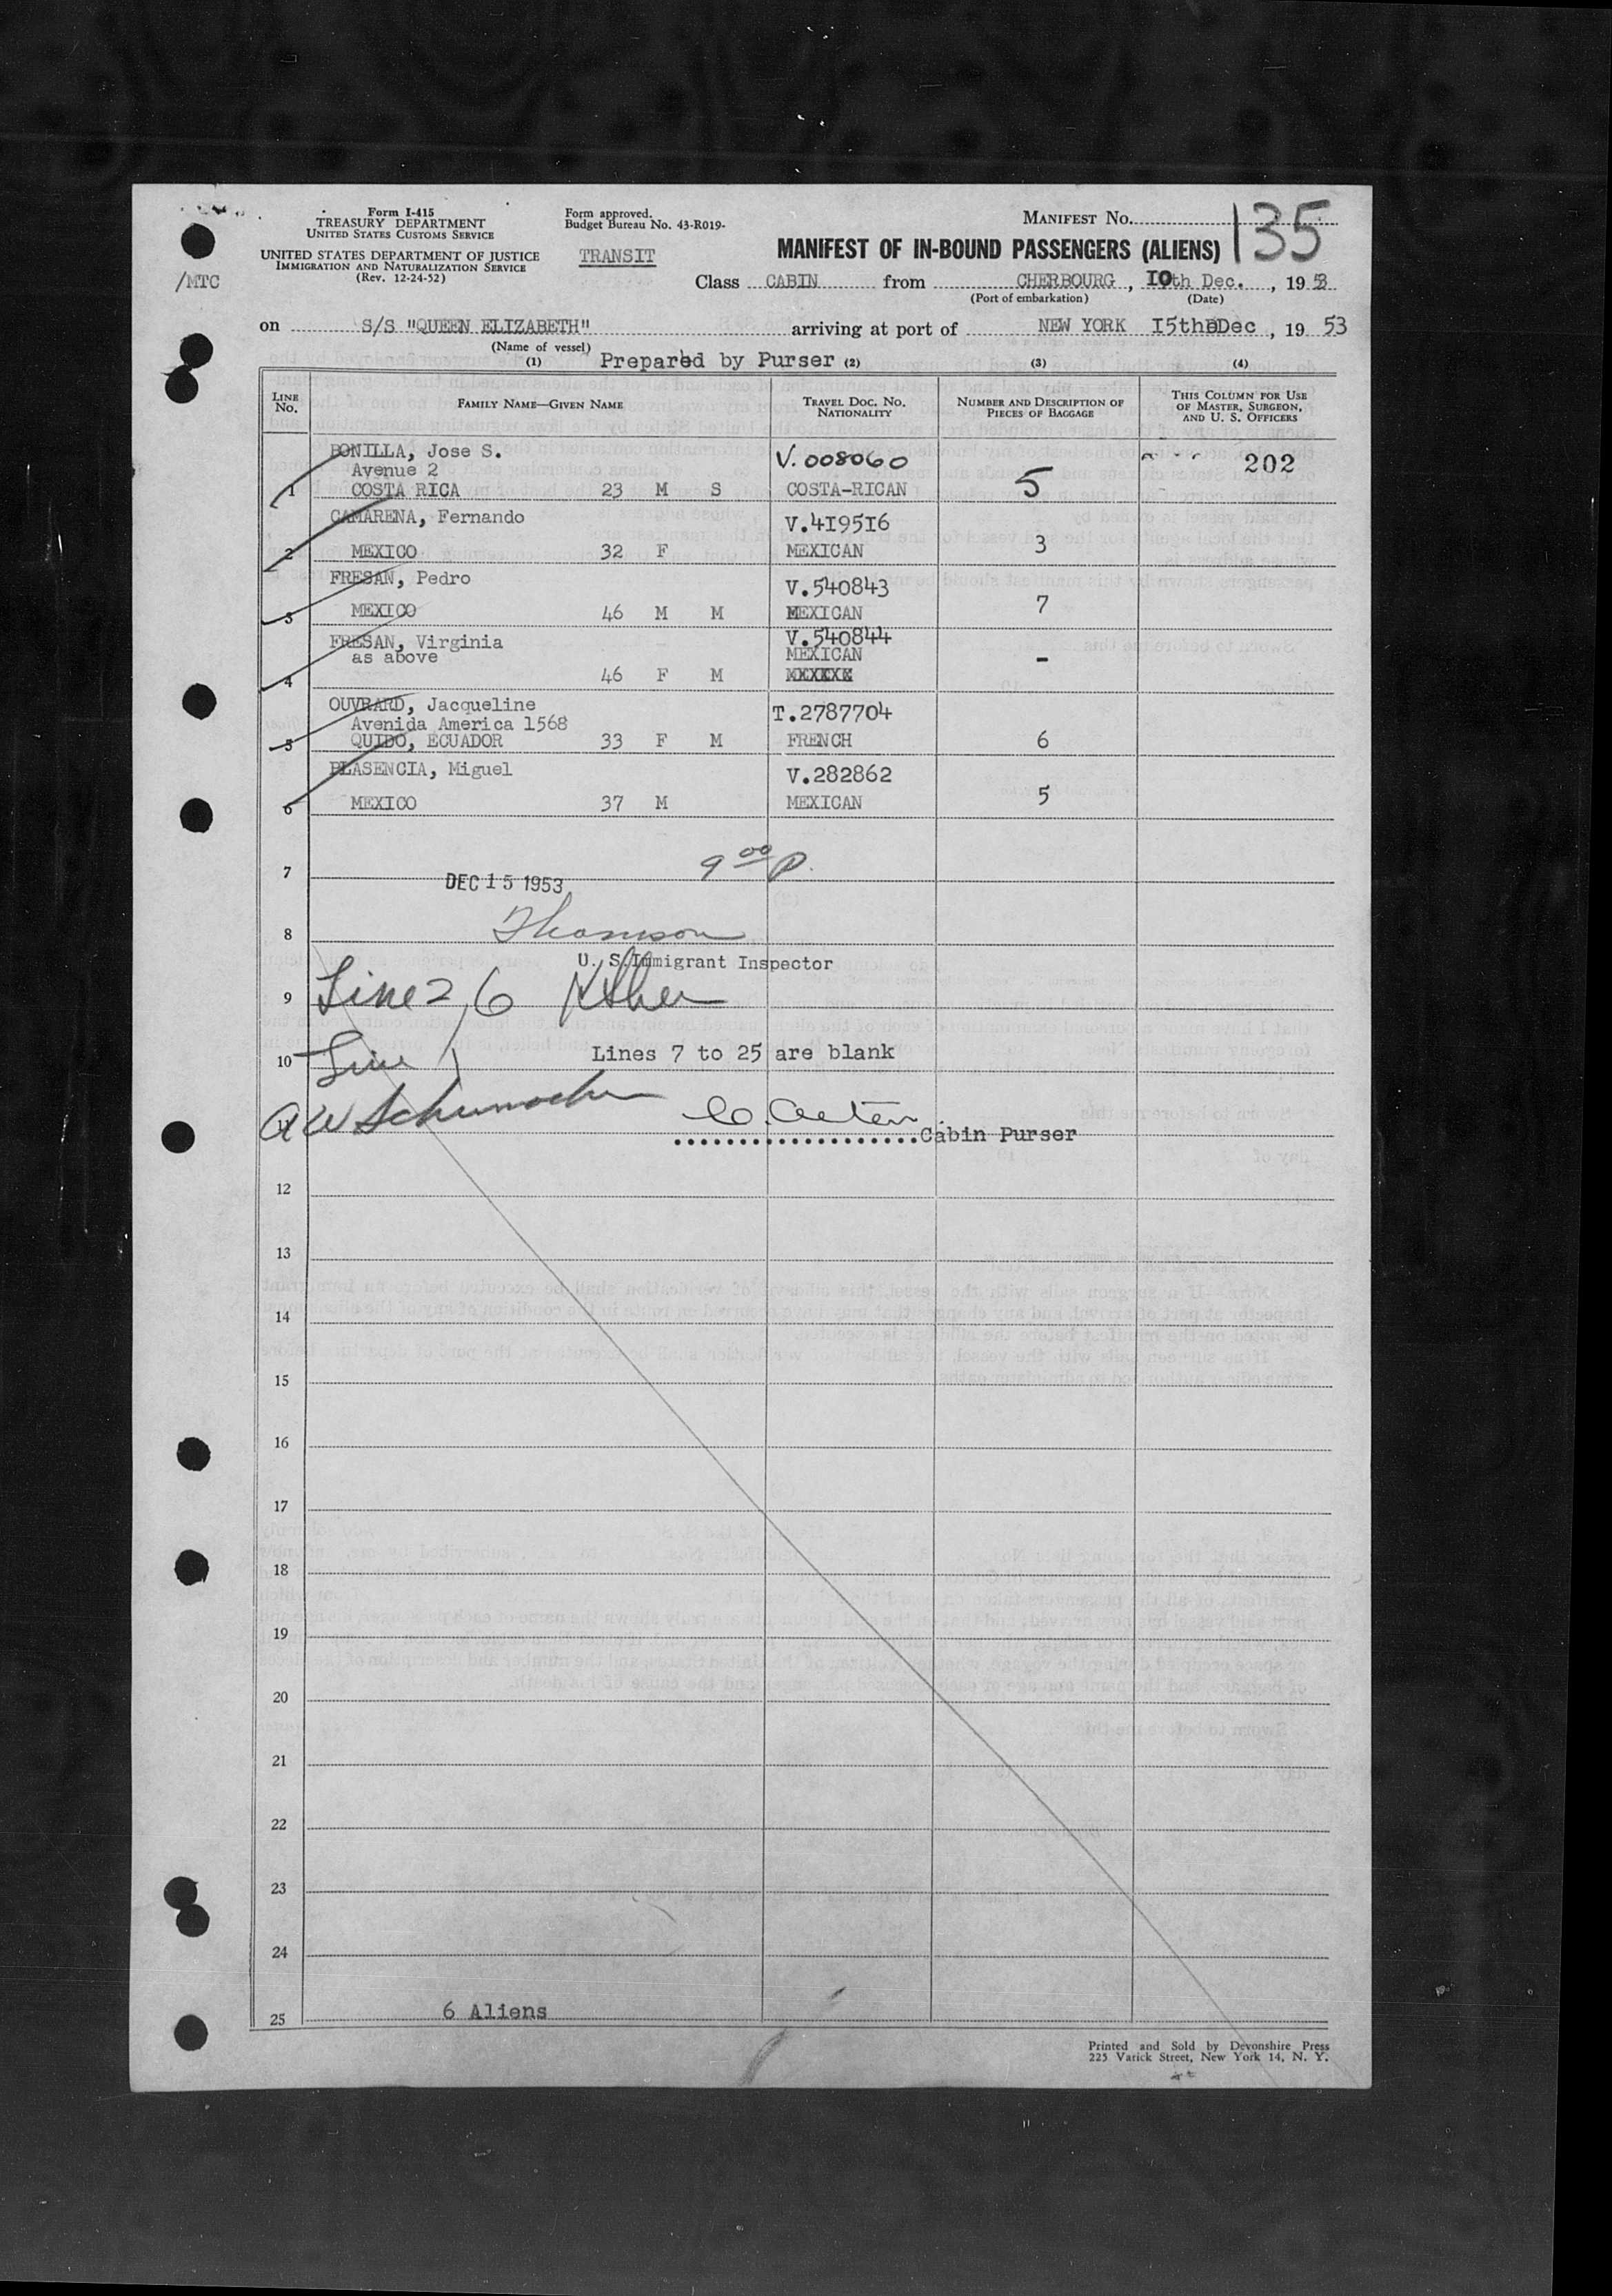 Form I-415
TREASURY DEPARTMENT
UNITED STATES CUSTOMS SERVICE
UNITED STATES DEPARTMENT OF JUSTICE
IMMIGRATION AND NATURALIZATION SERVICE
(Rev. 12-24-52)
/MTC
Form approved.
Budget Bureau No. 43-R019-
TRANSIT
MANIFEST NO. 135
MANIFEST OF IN-BOUND PASSENGERS (ALIENS)
Class CABIN from CHERBOURG, 10th Dec., 1953
(Port of embarkation) (Date)
on S/S "QUEEN ELIZABETH" arriving at port of NEW YORK I5th Dec, 19 53
(Name of vessel)
(1) Prepared by Purser (2) (3) (4)
LINE No. FAMILY NAME—GIVEN NAME TRAVEL DOC. NO. NATIONALITY NUMBER AND DESCRIPTION OF PIECES OF BAGGAGE THIS COLUMN FOR USE OF MASTER, SURGEON, AND U. S. OFFICERS
BONILLA, Jose S. V. 008060 202
Avenue 2
1 COSTA RICA 23 M S COSTA-RICAN 5
CAMARENA, Fernando V.4I95I6
2 MEXICO 32 F MEXICAN 3
FRESAN, Pedro V.540843
3 MEXICO 46 M M MEXICAN 7
FRESAN, Virginia V.540844
as above MEXICAN -
4 46 F M
OUVRARD, Jacqueline T.2787704
Avenida America 1568
5 QUIDO, ECUADOR 33 F M FRENCH 6
PLASENCIA, Miguel V.282862
6 MEXICO 37 M MEXICAN 5
9 00 P.
7 DEC 15 1953
8 Thomson
U. S. Immigrant Inspector
9 Line 2, 6
10 Line 1 Lines 7 to 25 are blank
11 AW Schumacher
Cabin Purser
12
13
14
15
16
17
18
19
20
21
22
23
24
25 6 Aliens
Printed and Sold by Devonshire Press
225 Varick Street, New York 14, N. Y.